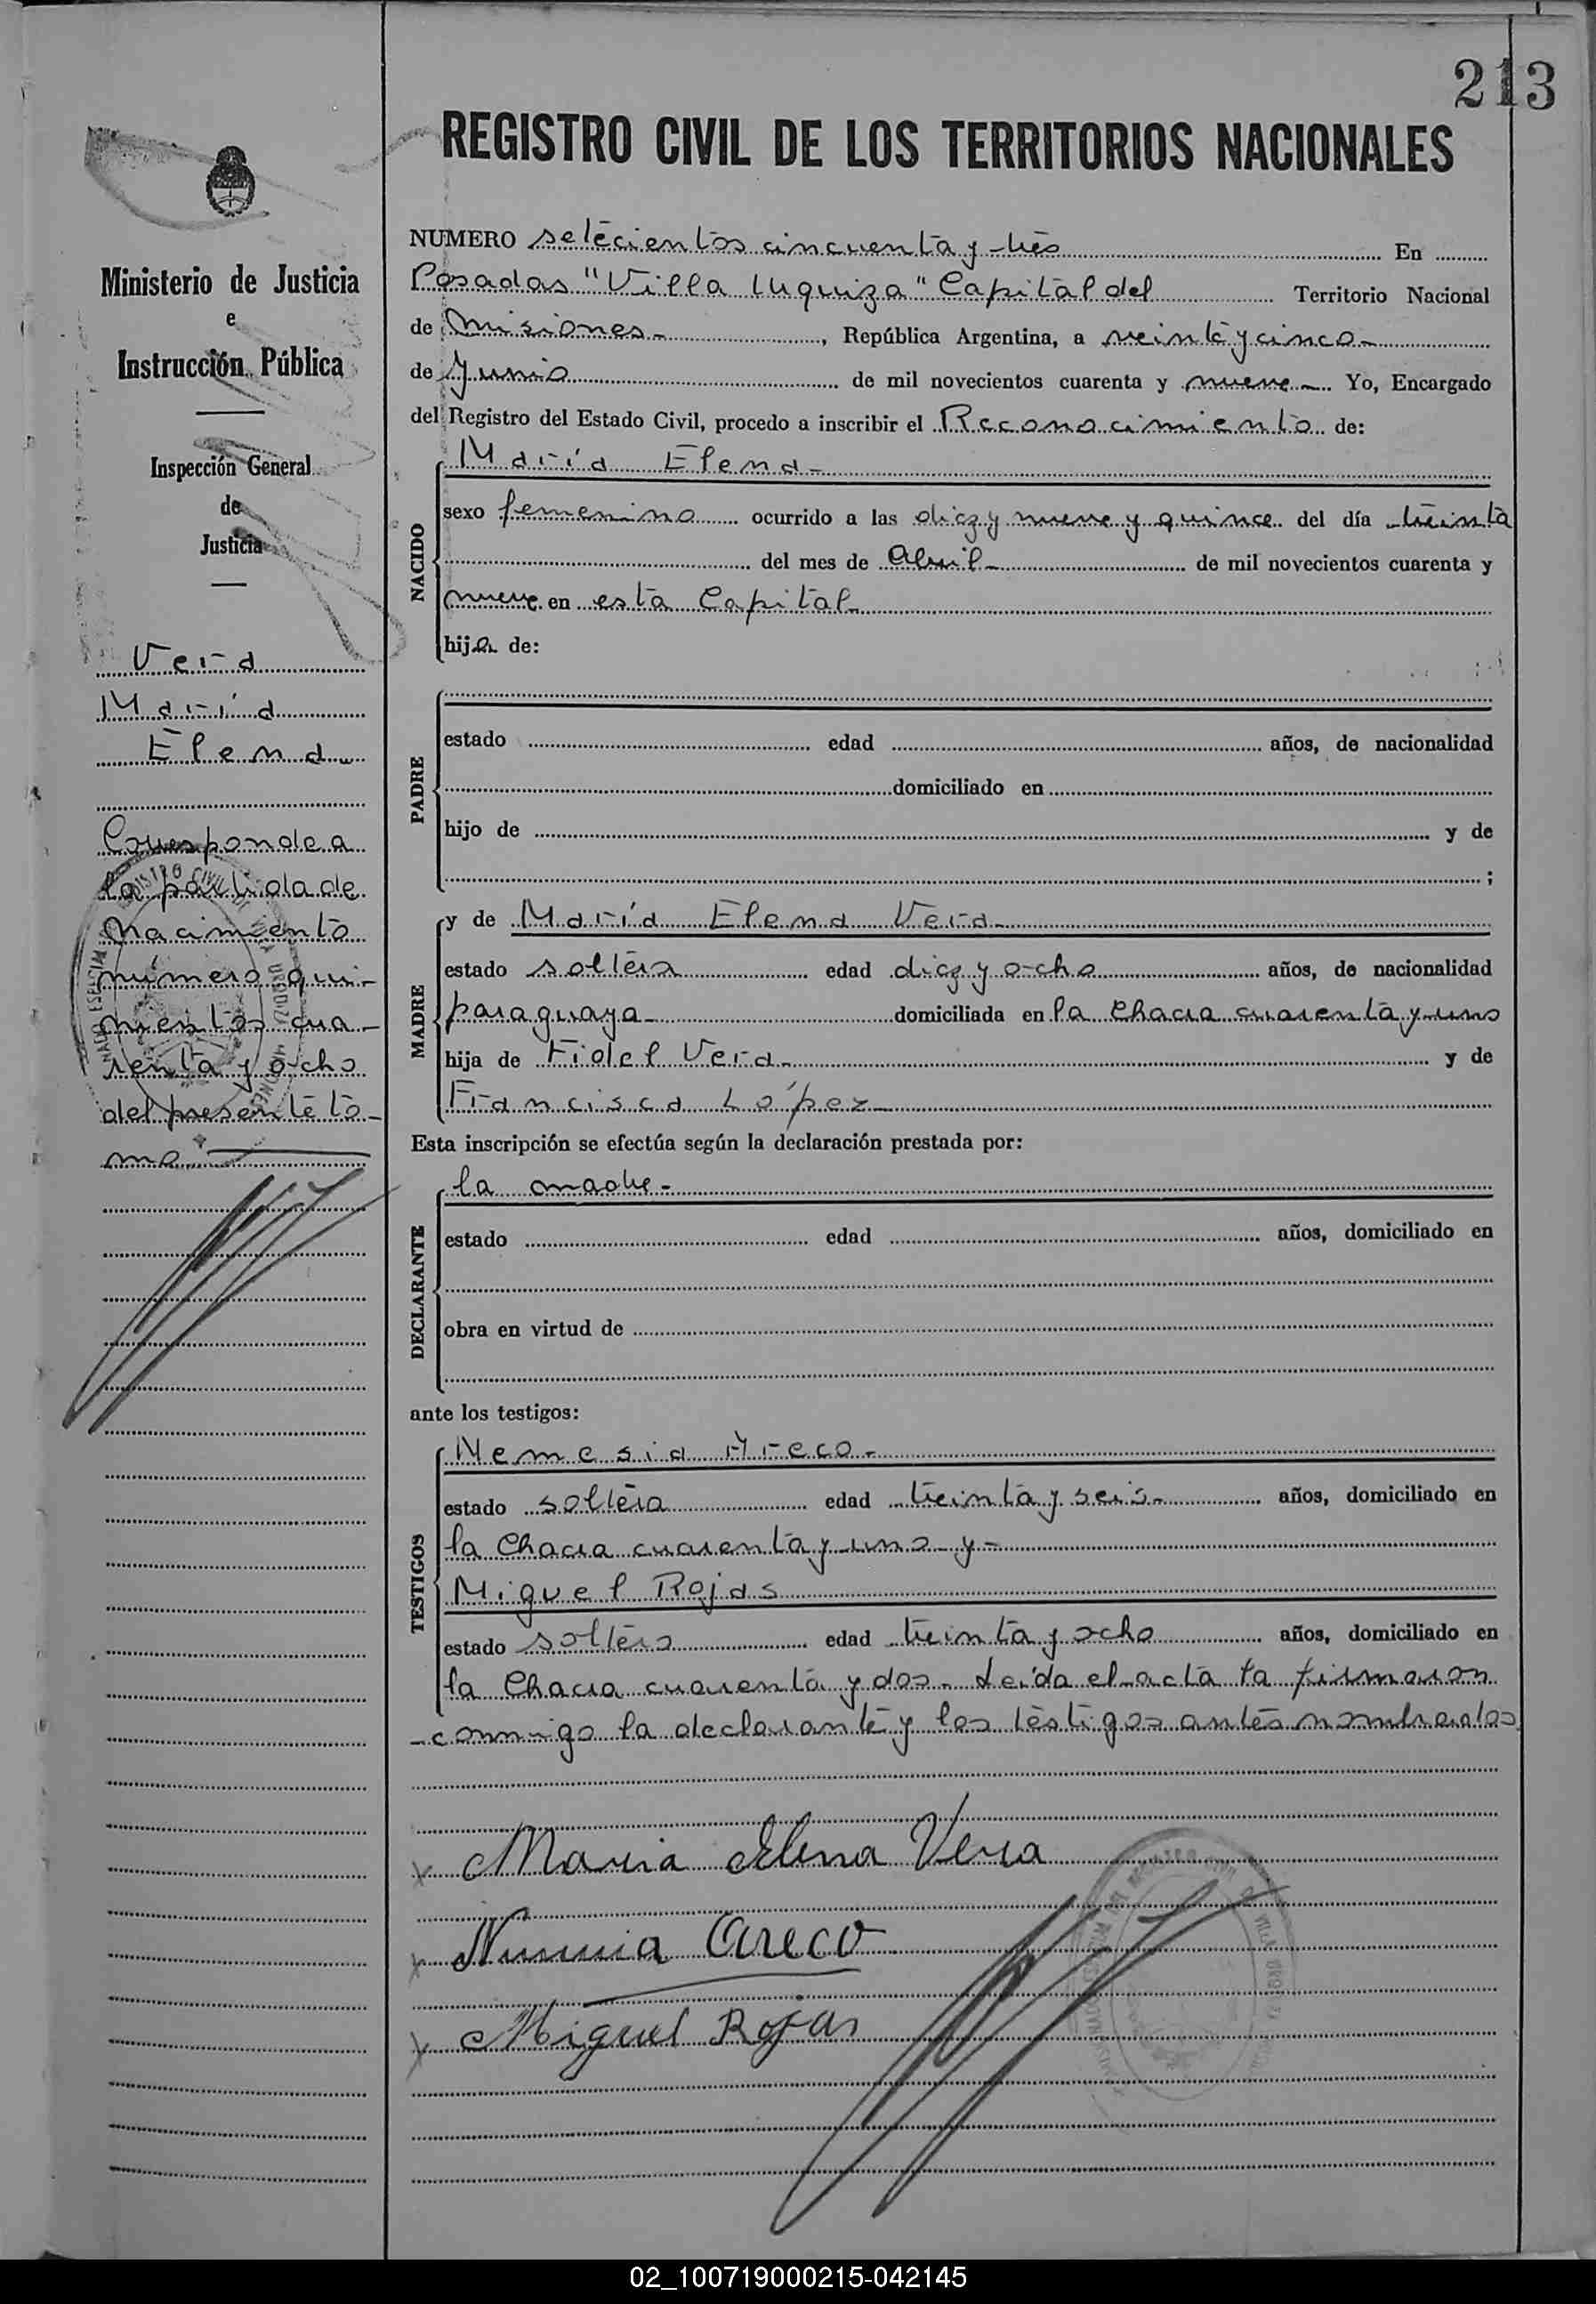 213
REGISTRO CIVIL DE LOS TERRITORIOS NACIONALES
Ministerio de Justicia
e
Instrucción Pública
Inspección General
de
Justicia
Vera
María
Elena
Corresponde a
la partida de
nacimiento
número qui-
nientos cua-
renta y ocho
del presente to-
mo
NUMERO setecientos cincuenta y tres En
Posadas "Villa Urquiza" Capital del Territorio Nacional
de Misiones- , República Argentina, a veinte y cinco-
de Junio de mil novecientos cuarenta y nueve- Yo, Encargado
del Registro del Estado Civil, procedo a inscribir el Reconocimiento de:
María Elena-
NACIDO
sexo femenino ocurrido a las diez y nueve y quince del día treinta
del mes de Abril- de mil novecientos cuarenta y
nueve en esta Capital-
hija de:
PADRE
estado edad años, de nacionalidad
domiciliado en
hijo de y de
;
MADRE
y de María Elena Vera-
estado soltera edad diez y ocho años, de nacionalidad
paraguaya- domiciliada en la Chacra cuarenta y uno
hija de Fidel Vera- y de
Francisca López-
Esta inscripción se efectúa según la declaración prestada por:
DECLARANTE
la madre-
estado edad años, domiciliado en
obra en virtud de
ante los testigos:
TESTIGOS
Nemesia Areco-
estado soltera edad treinta y seis- años, domiciliado en
la Chacra cuarenta y uno y-
Miguel Rojas
estado soltero edad treinta y ocho años, domiciliado en
la Chacra cuarenta y dos- Leída el acta la firmaron
conmigo la declarante y los testigos antes nombrados
x Maria Elena Vera
x Nemesia Areco
x Miguel Rojas
02_100719000215-042145